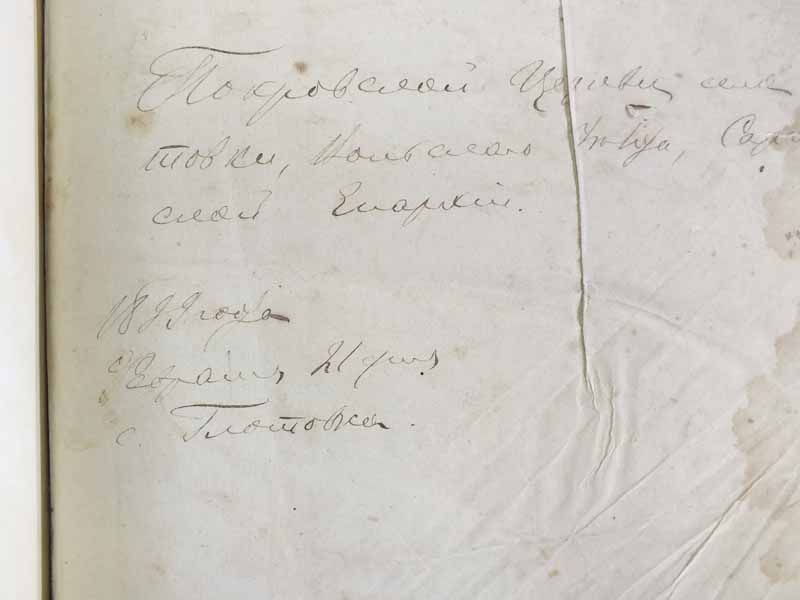 Покровской Церкви села
товки, Вольскаго Уѣзда, Сара
ской Епархіи.
1899 года
Февраля 21 дня
с. Глотовка.